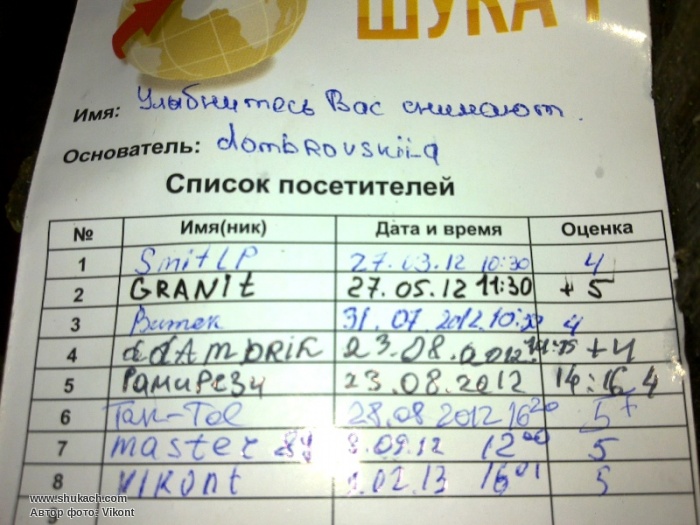 ШУКАЧ
Имя: Улыбнитесь Вас снимают.
Основатель: dombrovskii-a
Список посетителей
№ Имя(ник) Дата и время Оценка
1 SmitLP 27.03.12 10:30 4
2 GRANIt 27.05.12 11:30 + 5
3 Витек 31.07.2012 4
4 23.08.2012 +4
5 23.08.2012 14:16 4
6 Tak-Tol 28.08 2012 16 20 5+
7 master 09.12 12 00 5
8 VIKont 02.13 16 01 5
9
www.shukach.com
Автор фото: Vikont